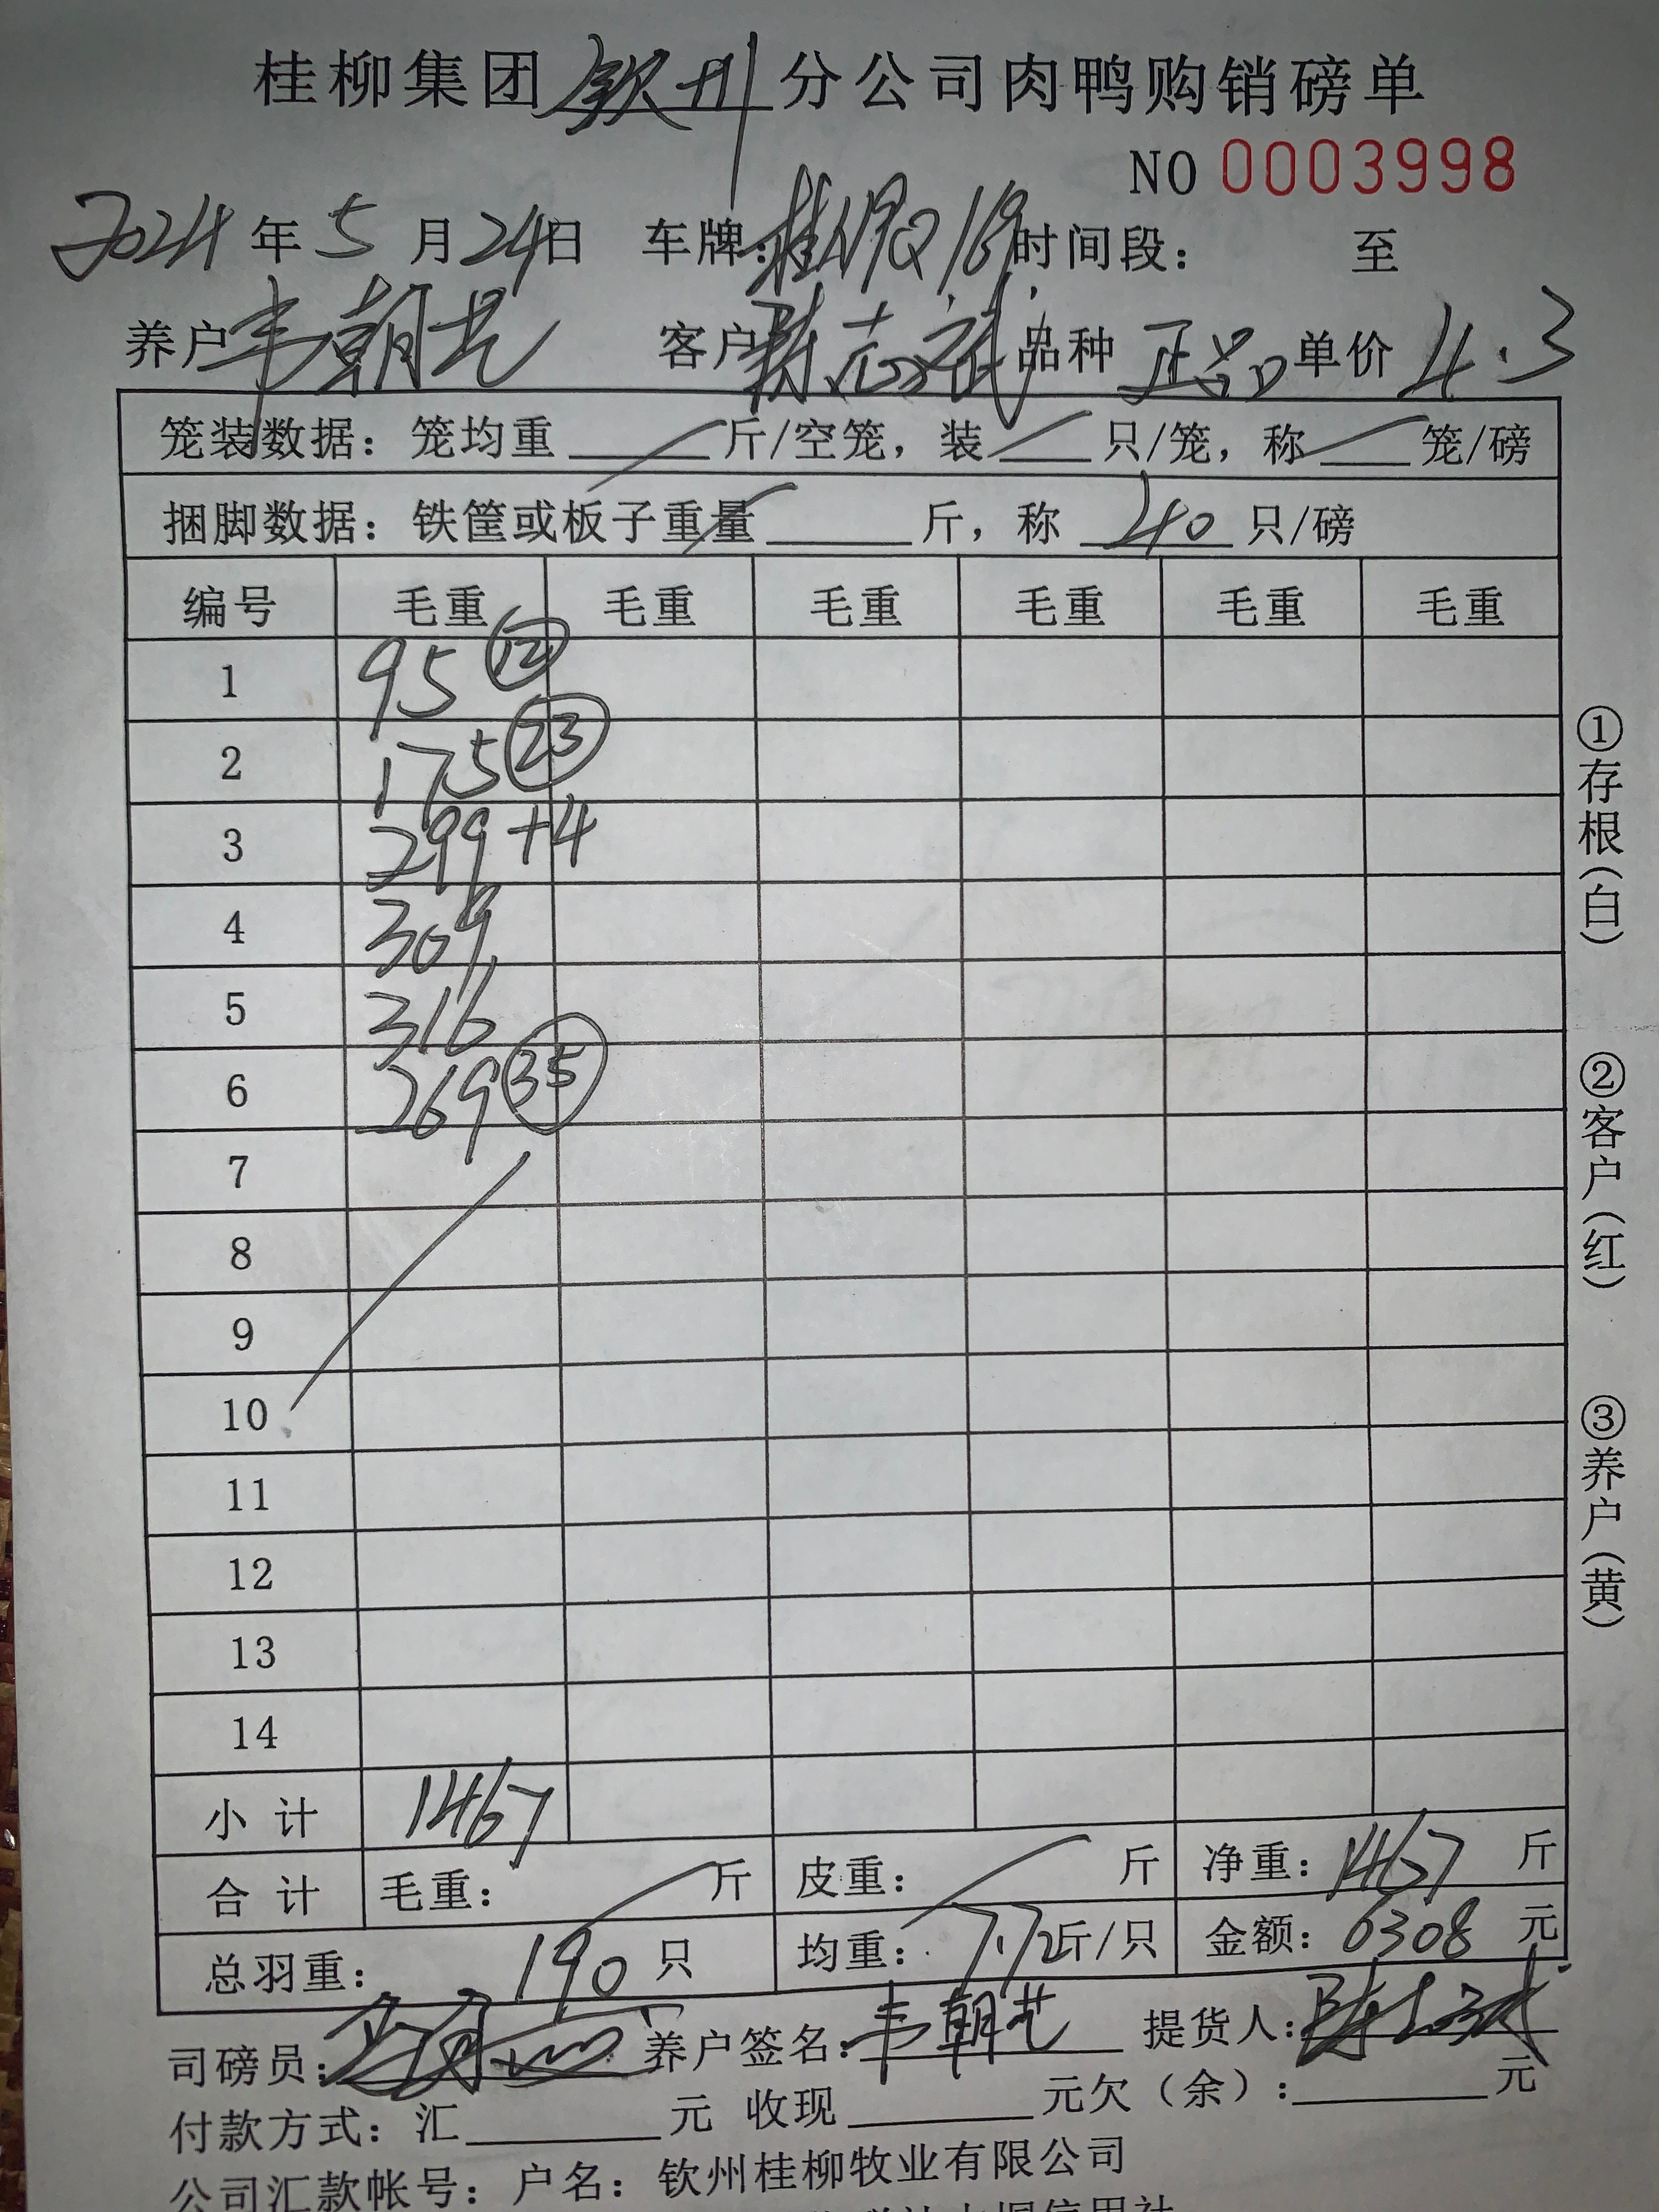 桂柳集团钦州分公司肉鸭购销磅单
NO 0003998
2024年5月24日 车牌: 时间段: 至
养户韦朝艺 客户陈志斌 品种 正品 单价 4.3
笼装数据: 笼均重 斤/空笼, 装 只/笼, 称 笼/磅
捆脚数据: 铁筐或板子重量 斤, 称 40 只/磅
编号 毛重 毛重 毛重 毛重 毛重 毛重
1 95 ⑫
2 175 ㉓
3 299+4
4 309
5 316
6 269 ㉟
7
8
9
10
11
12
13
14
小计 1467
合计 毛重: 斤 皮重: 斤 净重: 1467 斤
总羽重: 190 只 均重: 7.72斤/只 金额: 6308 元
司磅员: 养户签名: 韦朝艺 提货人: 陈志斌
付款方式: 汇 元 收现 元欠(余): 元
公司汇款帐号: 户名: 钦州桂柳牧业有限公司
①存根(白)
②客户(红)
③养户(黄)